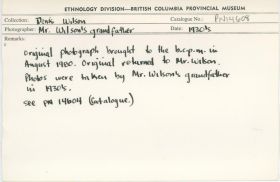 ETHNOLOGY DIVISION—BRITISH COLUMBIA PROVINCIAL MUSEUM
Collection: Denis Wilson Catalogue No.: PN14608
Photographer: Mr. Wilson's grandfather Date: 1930's
Remarks:
Original photograph brought to the b.c.p.m. in
August 1980. Original returned to Mr. Wilson.
Photos were taken by Mr. Wilson's grandfather
in 1930's.
see PN 14604 (Catalogue.)